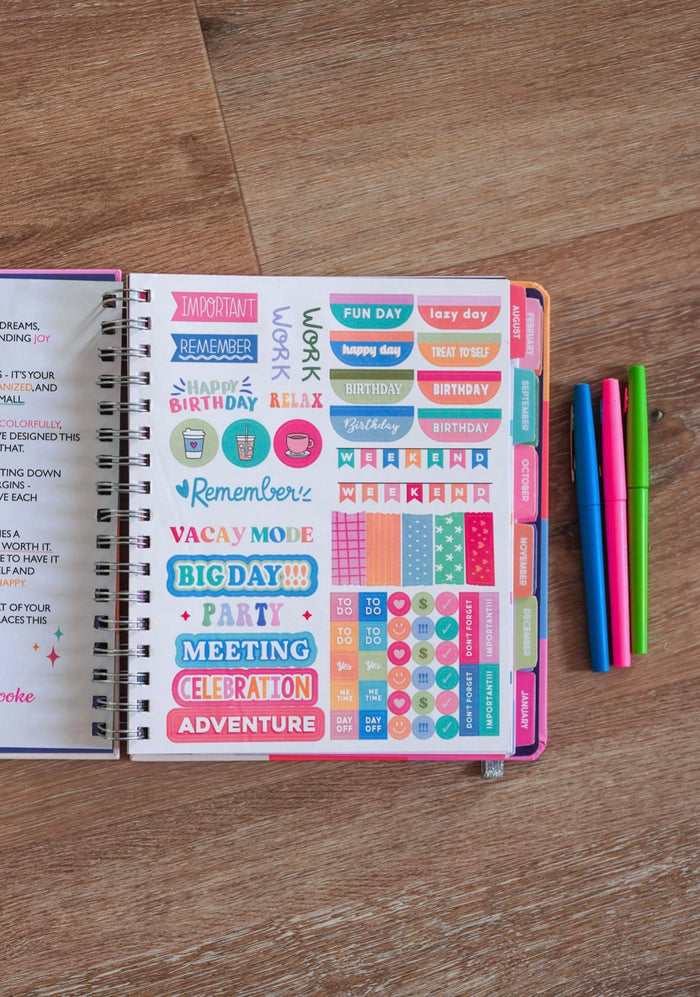 DREAMS,
NDING JOY
S - IT'S YOUR
ANIZED, AND
MALL.
COLORFULLY,
VE DESIGNED THIS
THAT.
TING DOWN
RGINS -
VE EACH
ES A
WORTH IT.
E TO HAVE IT
LF AND
HAPPY.
AT OF YOUR
LACES THIS
ooke
IMPORTANT
REMEMBER
WORK
WORK
HAPPY
BIRTHDAY
RELAX
Remember
VACAY MODE
BIG DAY!!!
PARTY
MEETING
CELEBRATION
ADVENTURE
FUN DAY
lazy day
happy day
TREAT YO'SELF
BIRTHDAY
BIRTHDAY
Birthday
BIRTHDAY
WEEKEND
WEEKEND
TO DO
TO DO
TO DO
TO DO
Yes
Yes
ME TIME
ME TIME
DAY OFF
DAY OFF
$
!!!
$
!!!
$
!!!
DON'T FORGET
IMPORTANT!!!
DON'T FORGET
IMPORTANT!!!
FEBRUARY
AUGUST
SEPTEMBER
OCTOBER
NOVEMBER
DECEMBER
JANUARY